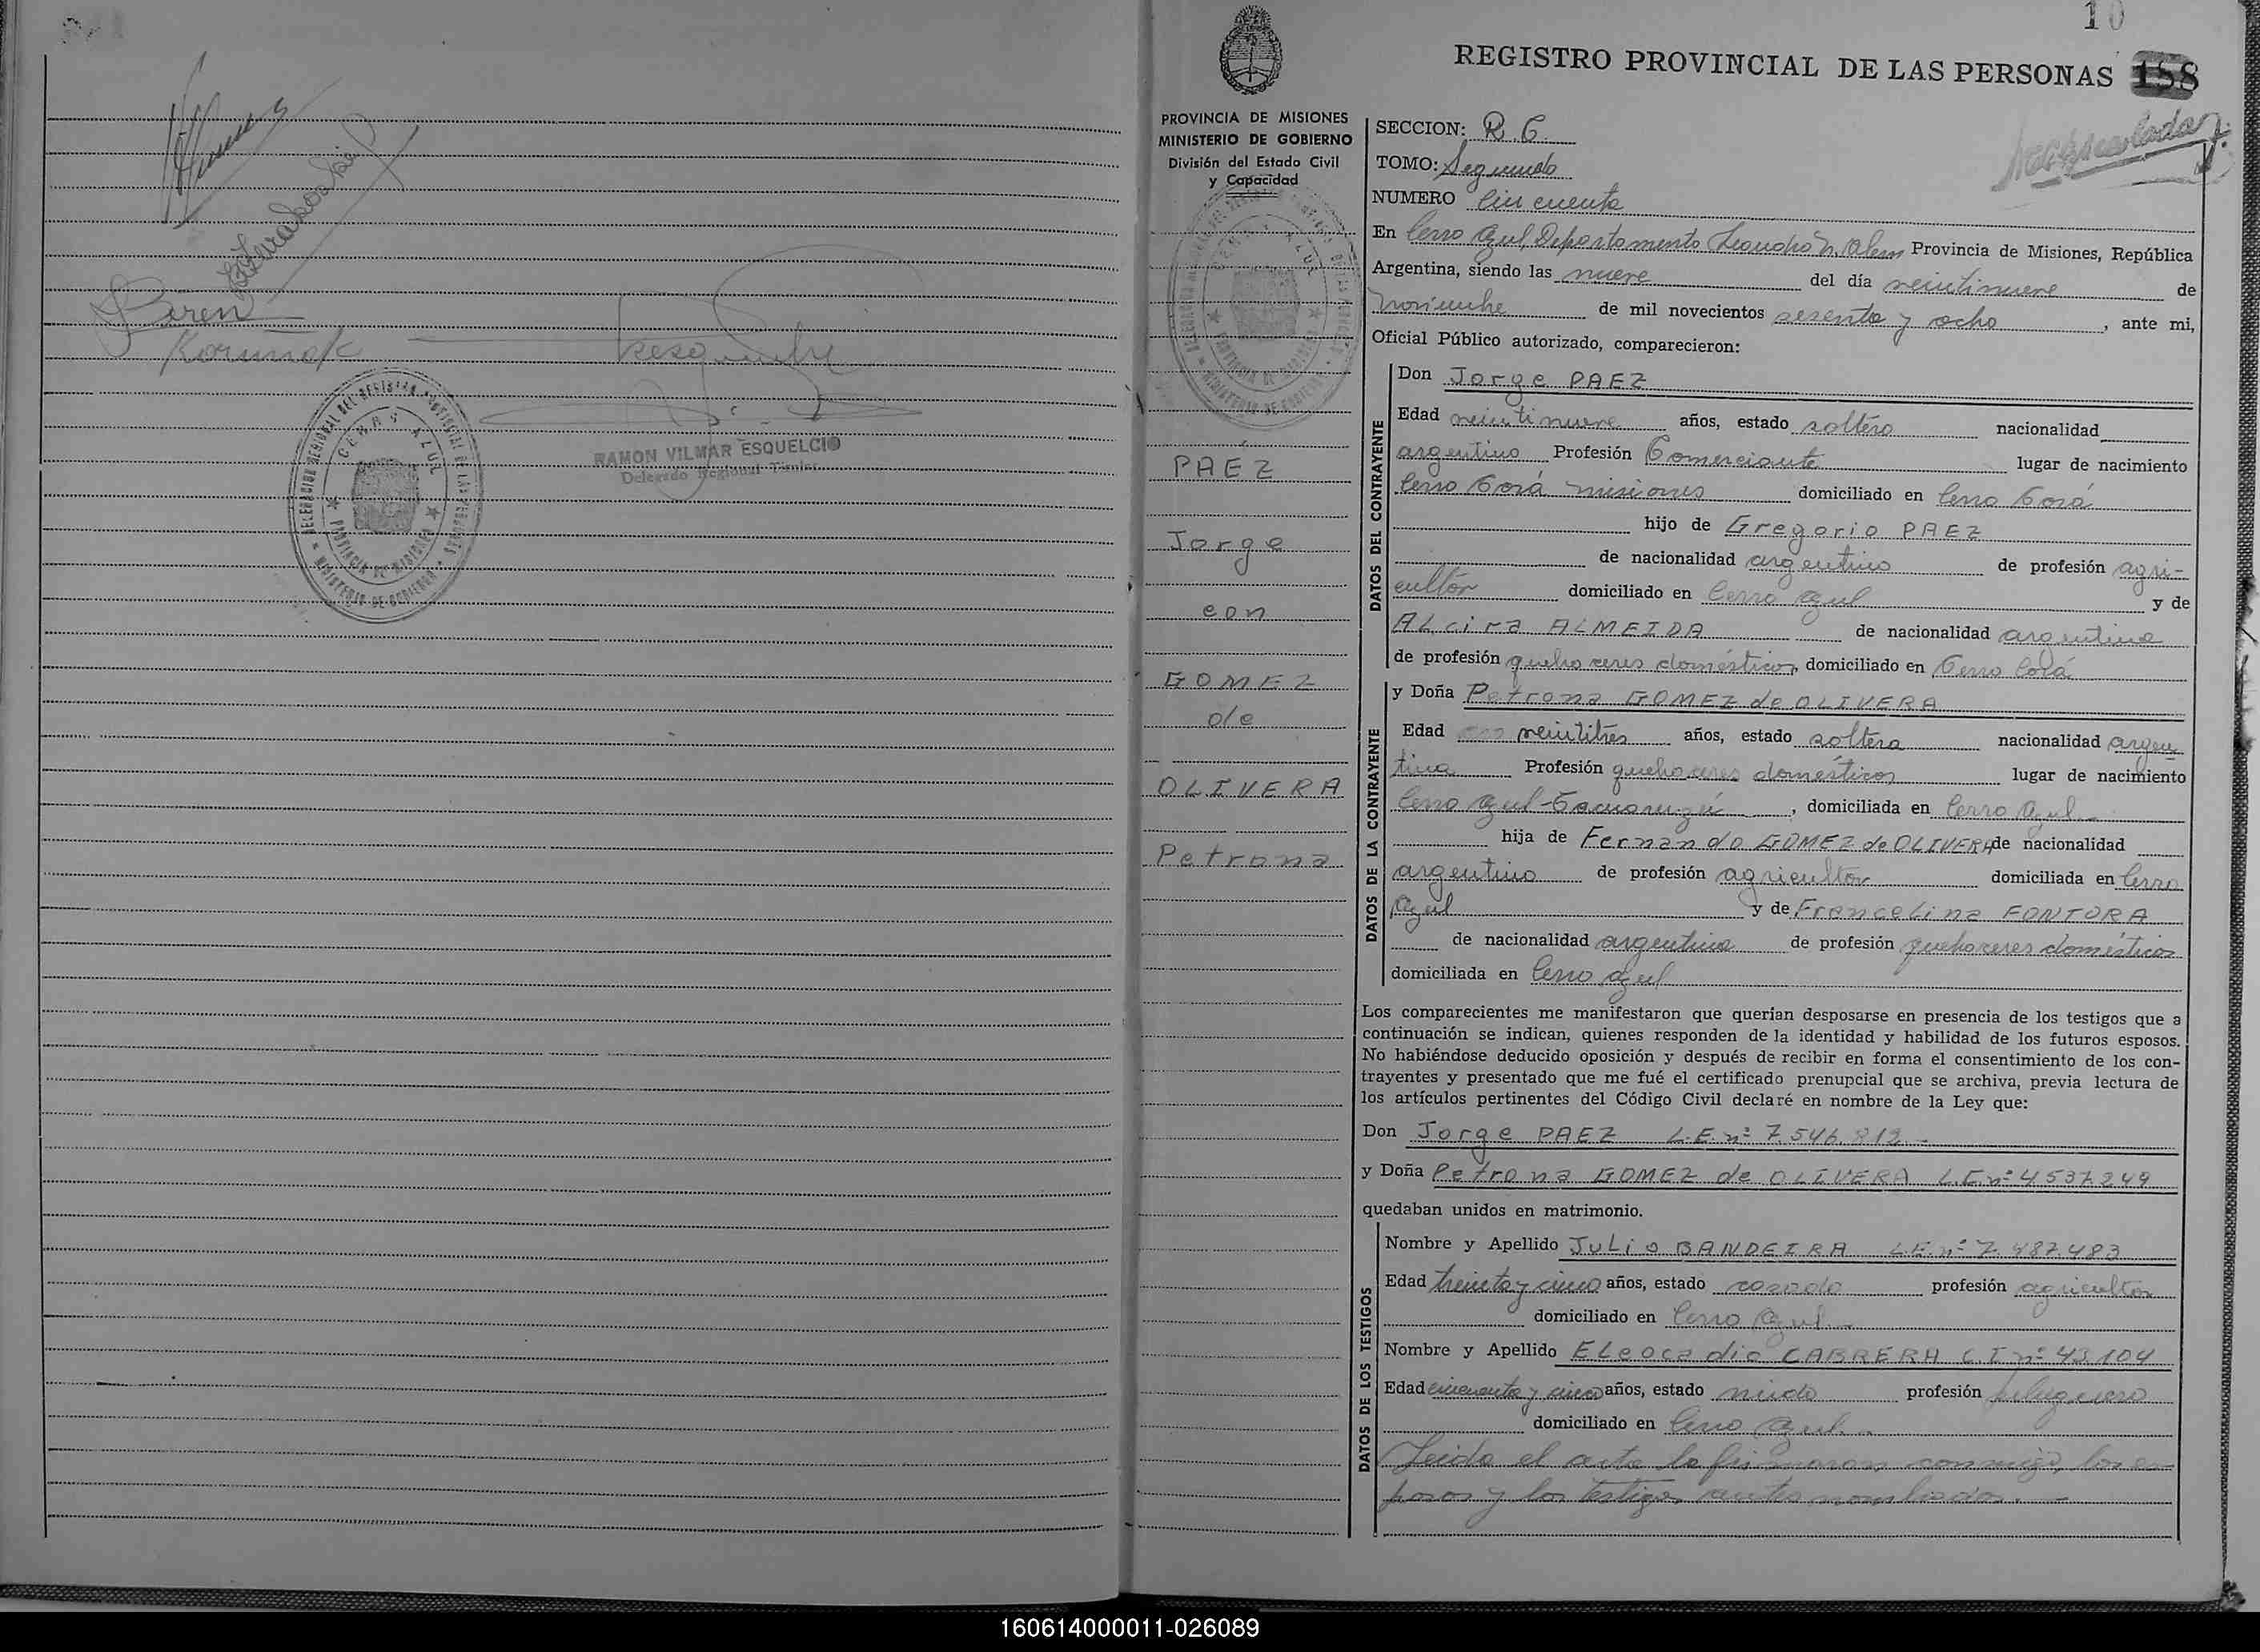 Beren
Korunak
DELEGACION REGIONAL DEL REGISTRO PROVINCIAL DE LAS PERSONAS
CERRO AZUL
PROVINCIA DE MISIONES
MINISTERIO DE GOBIERNO
RAMON VILMAR ESQUELCIO
Delegado Regional Titular
10
REGISTRO PROVINCIAL DE LAS PERSONAS 158
PROVINCIA DE MISIONES
MINISTERIO DE GOBIERNO
División del Estado Civil
y Capacidad
PAEZ
Jorge
con
GOMEZ
de
OLIVERA
Petrona
SECCION: R. C.
TOMO: Segundo
NUMERO Cincuenta
En Cerro Azul, Departamento Leandro N. Alem Provincia de Misiones, República
Argentina, siendo las nueve del día veintinueve de
noviembre de mil novecientos sesenta y ocho, ante mi,
Oficial Público autorizado, comparecieron:
DATOS DEL CONTRAYENTE
Don Jorge PAEZ
Edad veintinueve años, estado soltero nacionalidad
argentino Profesión Comerciante lugar de nacimiento
Cerro Corá Misiones domiciliado en Cerro Corá
hijo de Gregorio PAEZ
de nacionalidad argentino de profesión agri-
cultor domiciliado en Cerro Azul y de
ALcira ALMEIDA de nacionalidad argentina
de profesión quehaceres domésticos, domiciliado en Cerro Corá
DATOS DE LA CONTRAYENTE
y Doña Petrona GOMEZ de OLIVERA
Edad veintitres años, estado soltera nacionalidad argen
tina Profesión quehaceres domésticos lugar de nacimiento
Cerro Azul, domiciliada en Cerro Azul
hija de Fernando GOMEZ de OLIVERA de nacionalidad
argentino de profesión agricultor domiciliada en Cerro
Azul y de Francelina FONTORA
de nacionalidad argentina de profesión quehaceres domésticos
domiciliada en Cerro Azul
Los comparecientes me manifestaron que querían desposarse en presencia de los testigos que a
continuación se indican, quienes responden de la identidad y habilidad de los futuros esposos.
No habiéndose deducido oposición y después de recibir en forma el consentimiento de los con-
trayentes y presentado que me fué el certificado prenupcial que se archiva, previa lectura de
los artículos pertinentes del Código Civil declaré en nombre de la Ley que:
Don Jorge PAEZ L.E. nº 7.546.812 -
y Doña Petrona GOMEZ de OLIVERA L.C. nº 4.537.249
quedaban unidos en matrimonio.
DATOS DE LOS TESTIGOS
Nombre y Apellido JuLio BANDEIRA L.E. nº 7.487.483
Edad treinta y cinco años, estado casado profesión agricultor
domiciliado en Cerro Azul -
Nombre y Apellido ELeocadio CABRERA C.I nº 43.104
Edad cincuenta y cinco años, estado viudo profesión peluquero
domiciliado en Cerro Azul -
Leída el acta la firmaron conmigo, los es
posos y los testigos antes nombrados. -
160614000011-026089